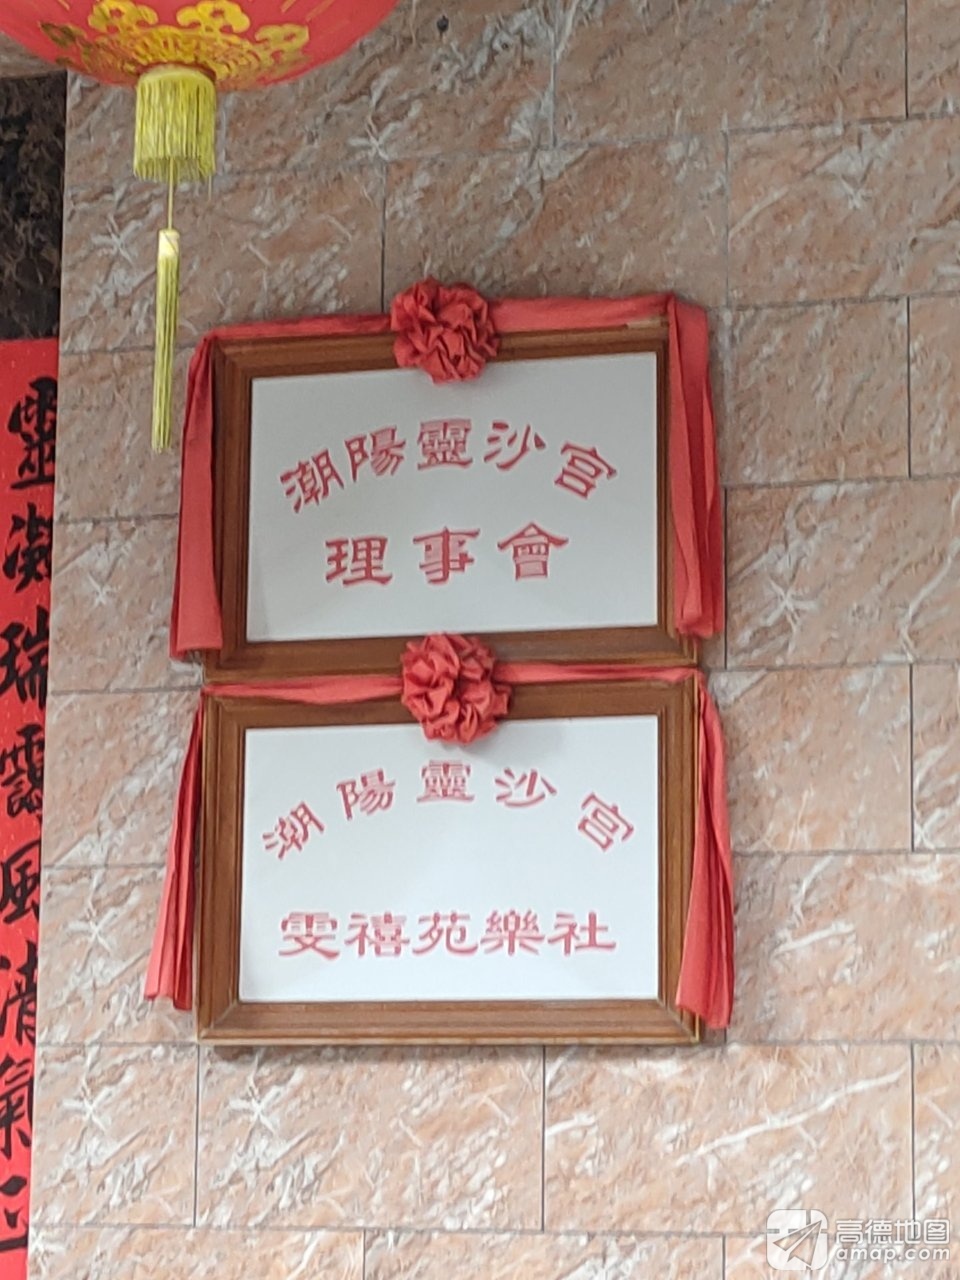 潮陽靈沙宮
理事會
潮陽靈沙宮
雯禧苑樂社
高德地图
amap.com